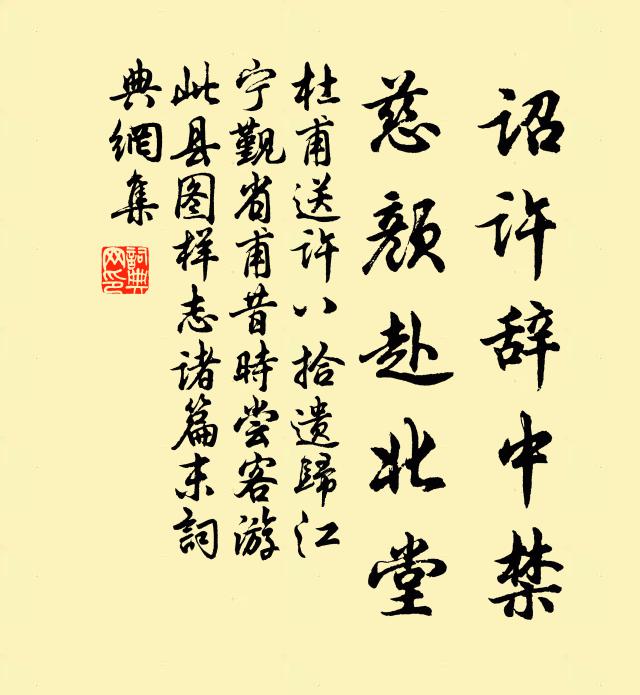 诏许辞中禁
慈颜赴北堂
杜甫送许八拾遗归江
宁觐省甫昔时尝客游
此县图样志诸篇末词
典網集
詞典
网印